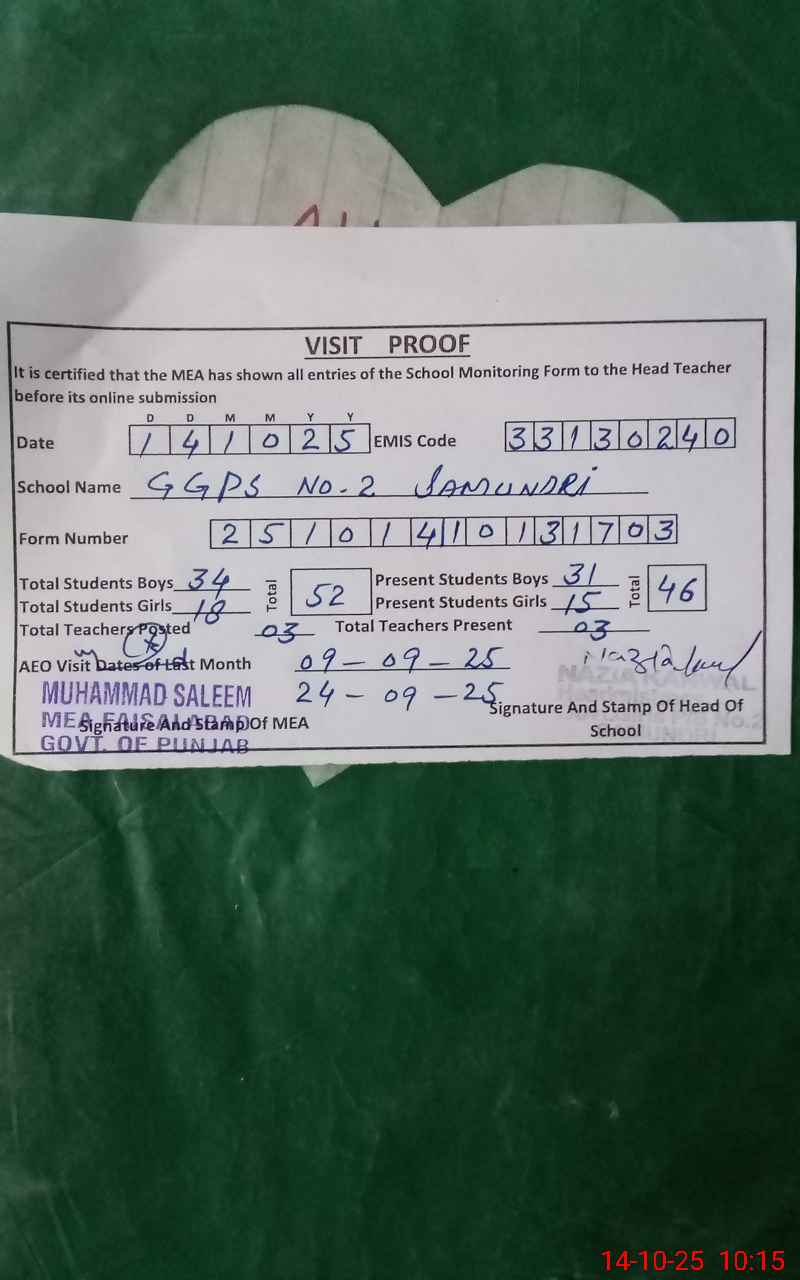 VISIT PROOF
It is certified that the MEA has shown all entries of the School Monitoring Form to the Head Teacher
before its online submission
D D M M Y Y
Date 1 4 1 0 2 5 EMIS Code 3 3 1 3 0 2 4 0
School Name GGPS NO-2 SAMUNDRI
Form Number 2 5 1 0 1 4 1 0 1 3 1 7 0 3
Total Students Boys 34 Total 52 Present Students Boys 31 Total 46
Total Students Girls 18 Present Students Girls 15
Total Teachers Posted 03 Total Teachers Present 03
AEO Visit Dates of Last Month 09-09-25
24-09-25
MUHAMMAD SALEEM
MEA FAISALABAD
GOVT. OF PUNJAB
Signature And Stamp Of MEA
Signature And Stamp Of Head Of
School
14-10-25 10:15